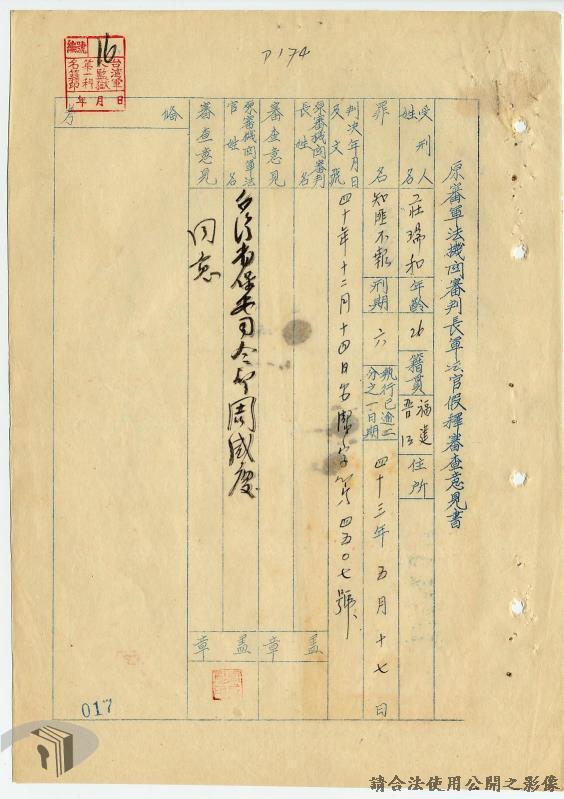 P174
16
台灣軍
監獄
第一科
名籍印
年 月 日
原審軍法機関審判長軍法官假釋審查意見書
受刑人姓名 莊瑞和 年齡 26 籍貫 福建晋江 住所
罪名 知匪不報 刑期 六 執行已逾二分之一日期 四十三年五月十七日
判決年月日及文號 四十年十二月十四日 字第四五〇七號
原審機関審判長姓名
審查意見 蓋章
原審機関軍法官姓名 保安司令部周咸慶
審查意見 同意 蓋章
備考
017
請合法使用公開之影像